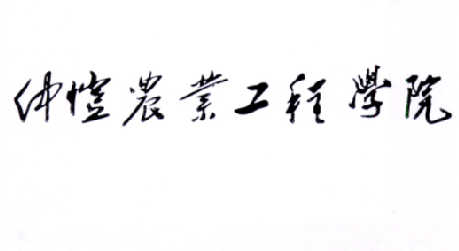 仲恺農業工程學院